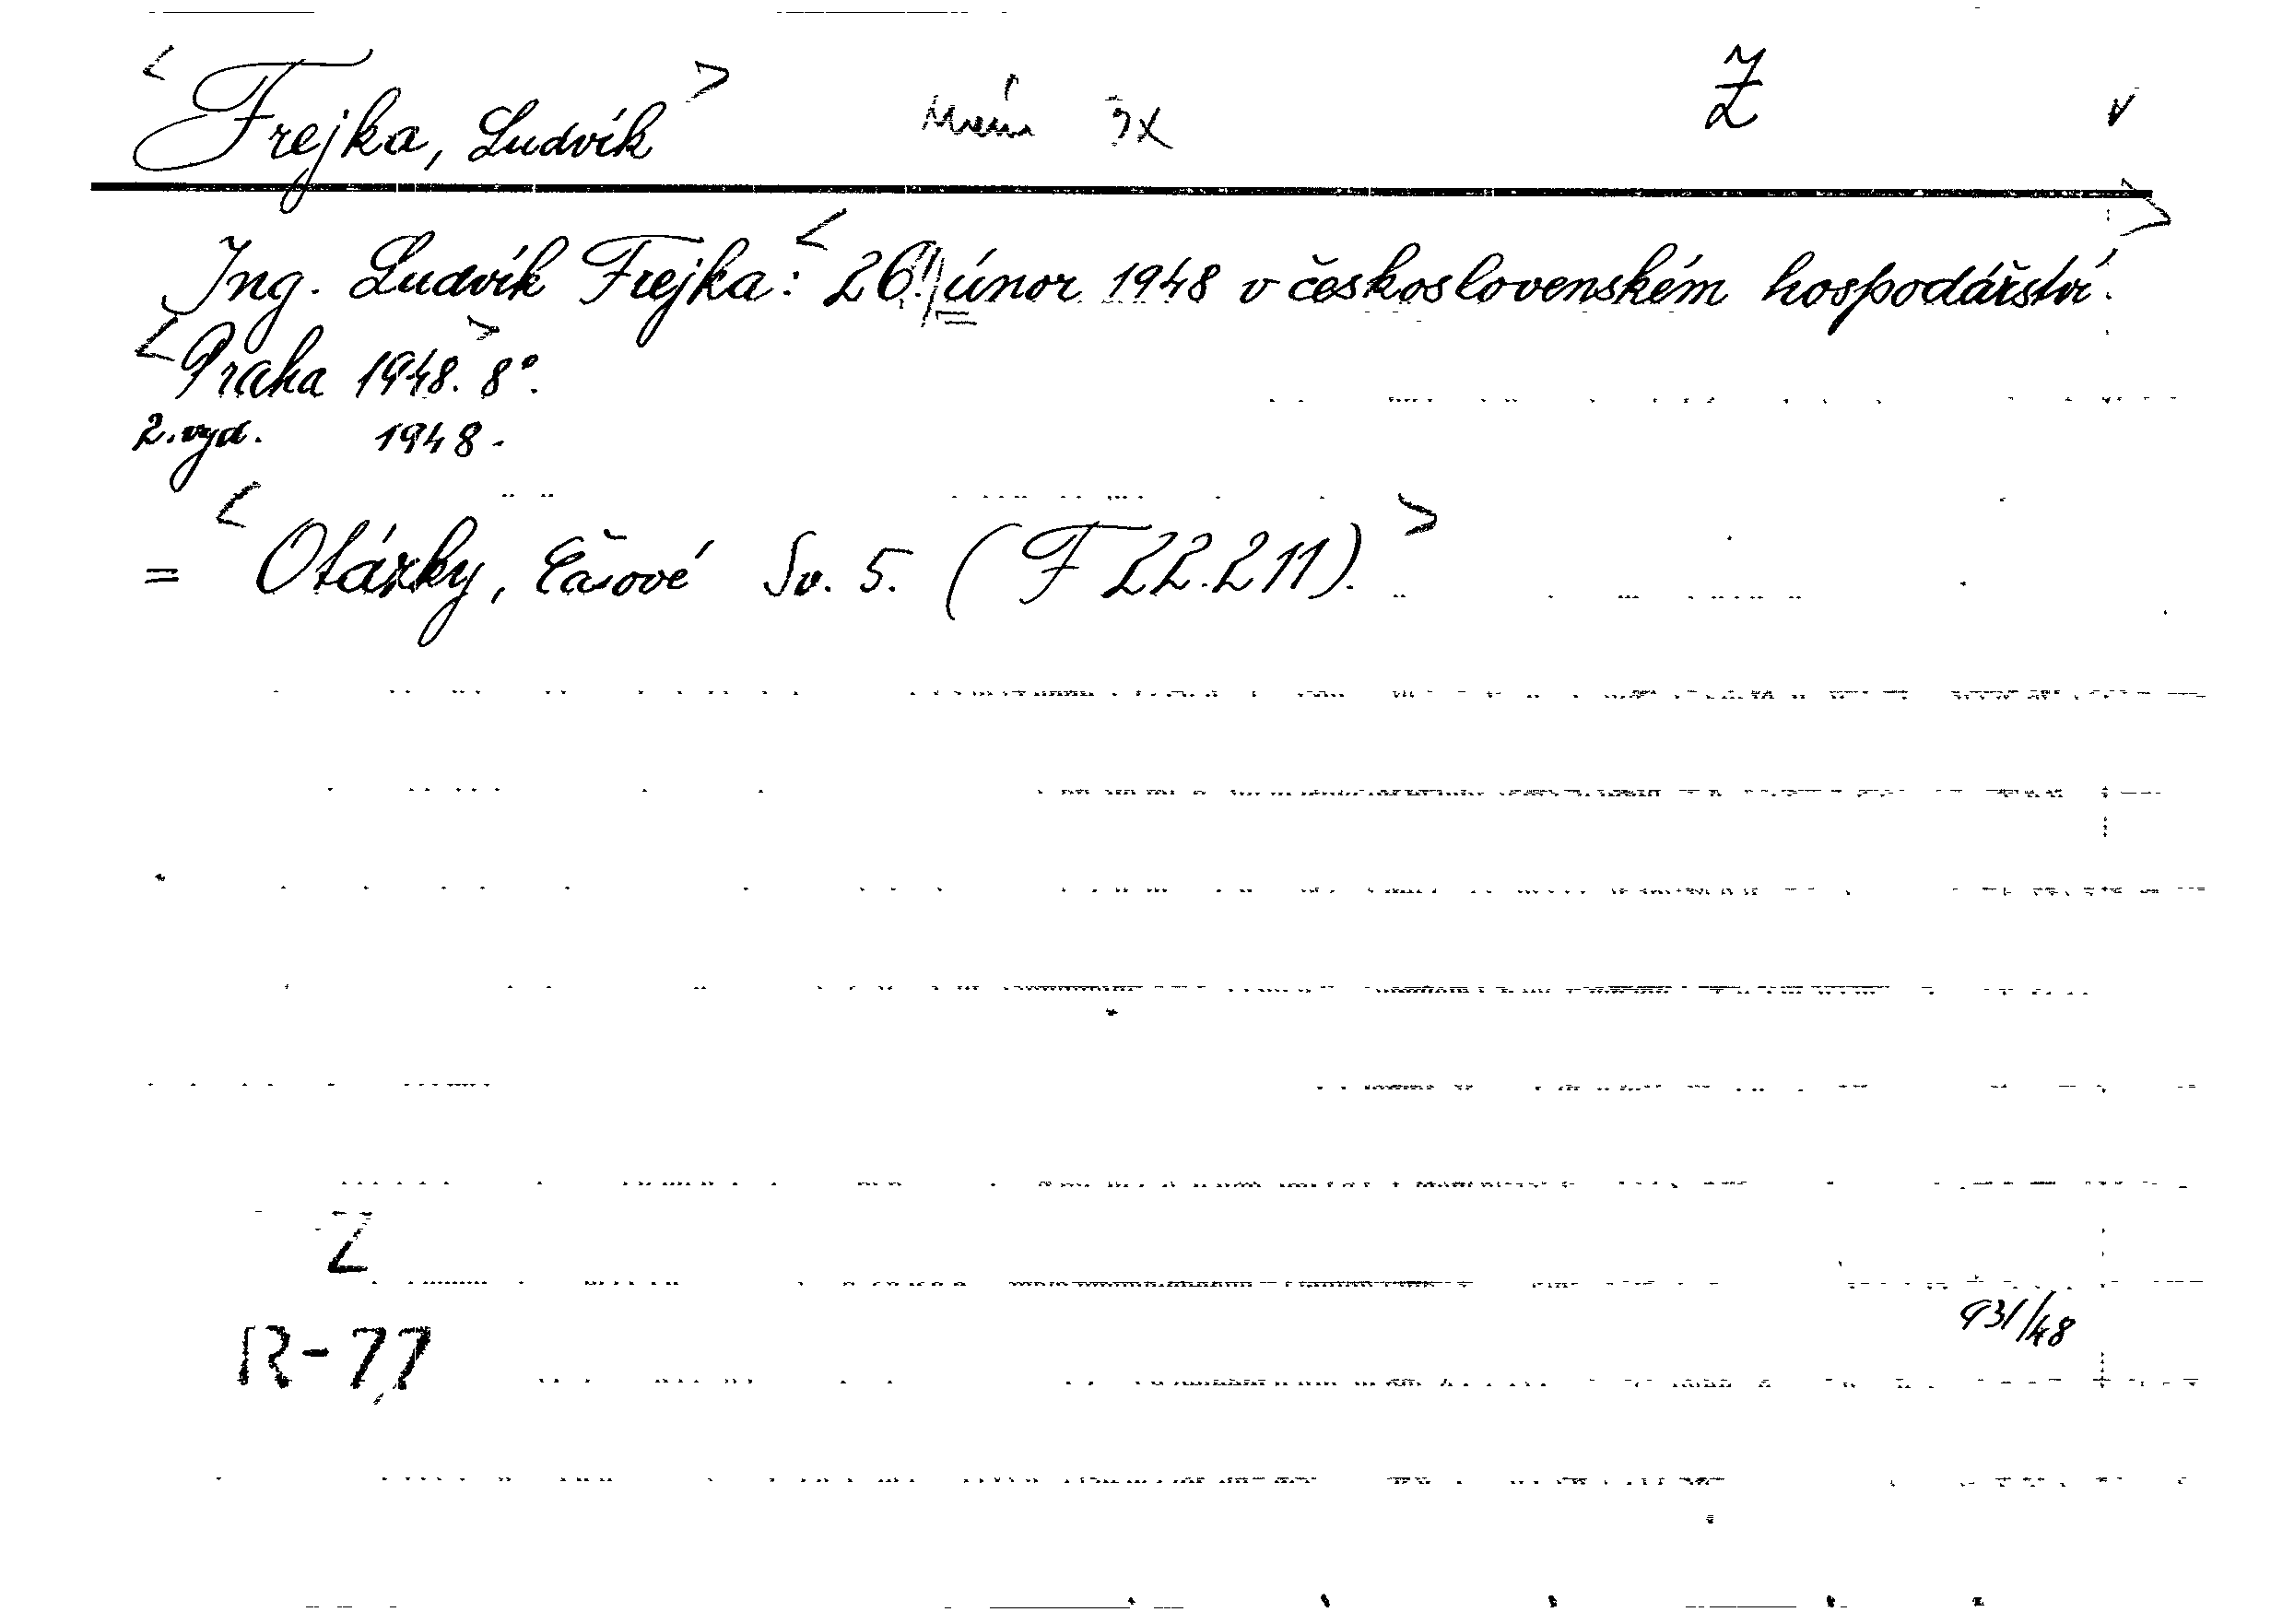 <Frejka, Ludvík> 3x Ž v
Ing. Ludvík Frejka: <26. únor 1948 v československém hospodářství.>
<Praha 1948.> 8°.
2. vyd. 1948.
= <Otázky, Časové Sv. 5. (F 22.211).>
Z
R-77
931/48